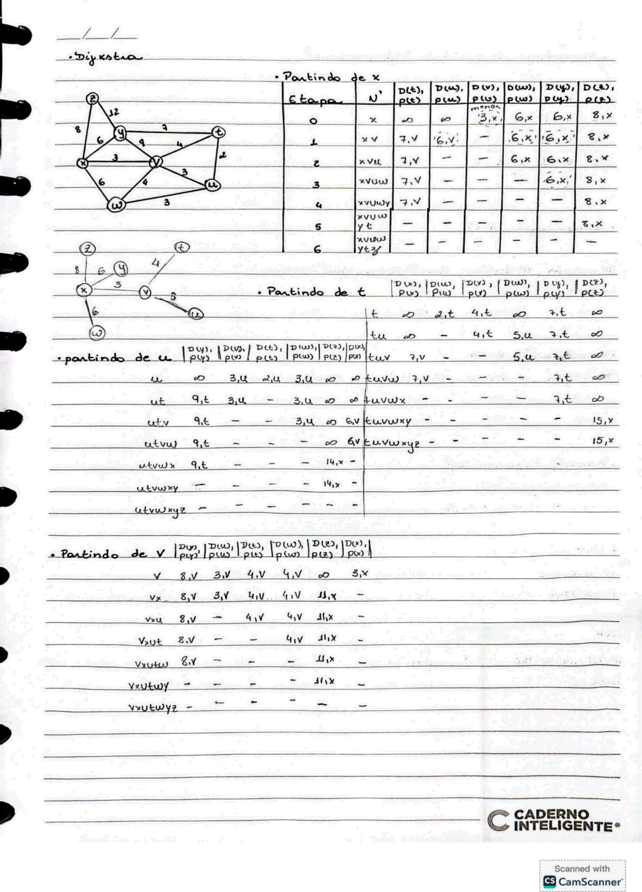 __/__/__
• Dijkstra
• Partindo de x
Etapa N' D(t), p(t) D(u), p(u) D(v), p(v) D(w), p(w) D(y), p(y) D(z), p(z)
menor
0 x ∞ ∞ 3,x 6,x 6,x 8,x
1 xv 7,v 6,v – 6,x 6,x 8,x
2 xvu 7,v – – 6,x 6,x 8,x
3 xvuw 7,v – – – 6,x 8,x
4 xvuwy 7,v – – – – 8,x
5 xvuwyt – – – – – 8,x
6 xvuwytz – – – – – –
z 12 y 7 t
8 6 8 4 2
x 3 v 3 u
6 4 w 3
z t
8 6 y 4
x 3 v 3 u
6
w
• Partindo de t D(x), p(x) D(u), p(u) D(v), p(v) D(w), p(w) D(y), p(y) D(z), p(z)
t ∞ 2,t 4,t ∞ 7,t ∞
tu ∞ – 4,t 5,u 7,t ∞
tuv 7,v – – 5,u 7,t ∞
tuvw 7,v – – – 7,t ∞
tuvwx – – – – 7,t ∞
tuvwxy – – – – – 15,x
tuvwxyz – – – – – 15,x
• partindo de u D(y), p(y) D(v), p(v) D(t), p(t) D(w), p(w) D(z), p(z)
u ∞ 3,u 2,u 3,u ∞ ∞
ut 9,t 3,u – 3,u ∞ ∞
utv 9,t – – 3,u ∞ 6,v
utvw 9,t – – – ∞ 6,v
utvwx 9,t – – – 14,x –
utvwxy – – – – 14,x –
utvwxyz – – – – – –
• Partindo de v D(y), p(y) D(u), p(u) D(t), p(t) D(w), p(w) D(z), p(z) D(x), p(x)
v 8,v 3,v 4,v 4,v ∞ 3,x
vx 8,v 3,v 4,v 4,v 11,x –
vxu 8,v – 4,v 4,v 11,x –
vxut 8,v – – 4,v 11,x –
vxutw 8,v – – – 11,x –
vxutwy – – – – 11,x –
vxutwyz – – – – – –
CADERNO
INTELIGENTE®
Scanned with
CS CamScanner